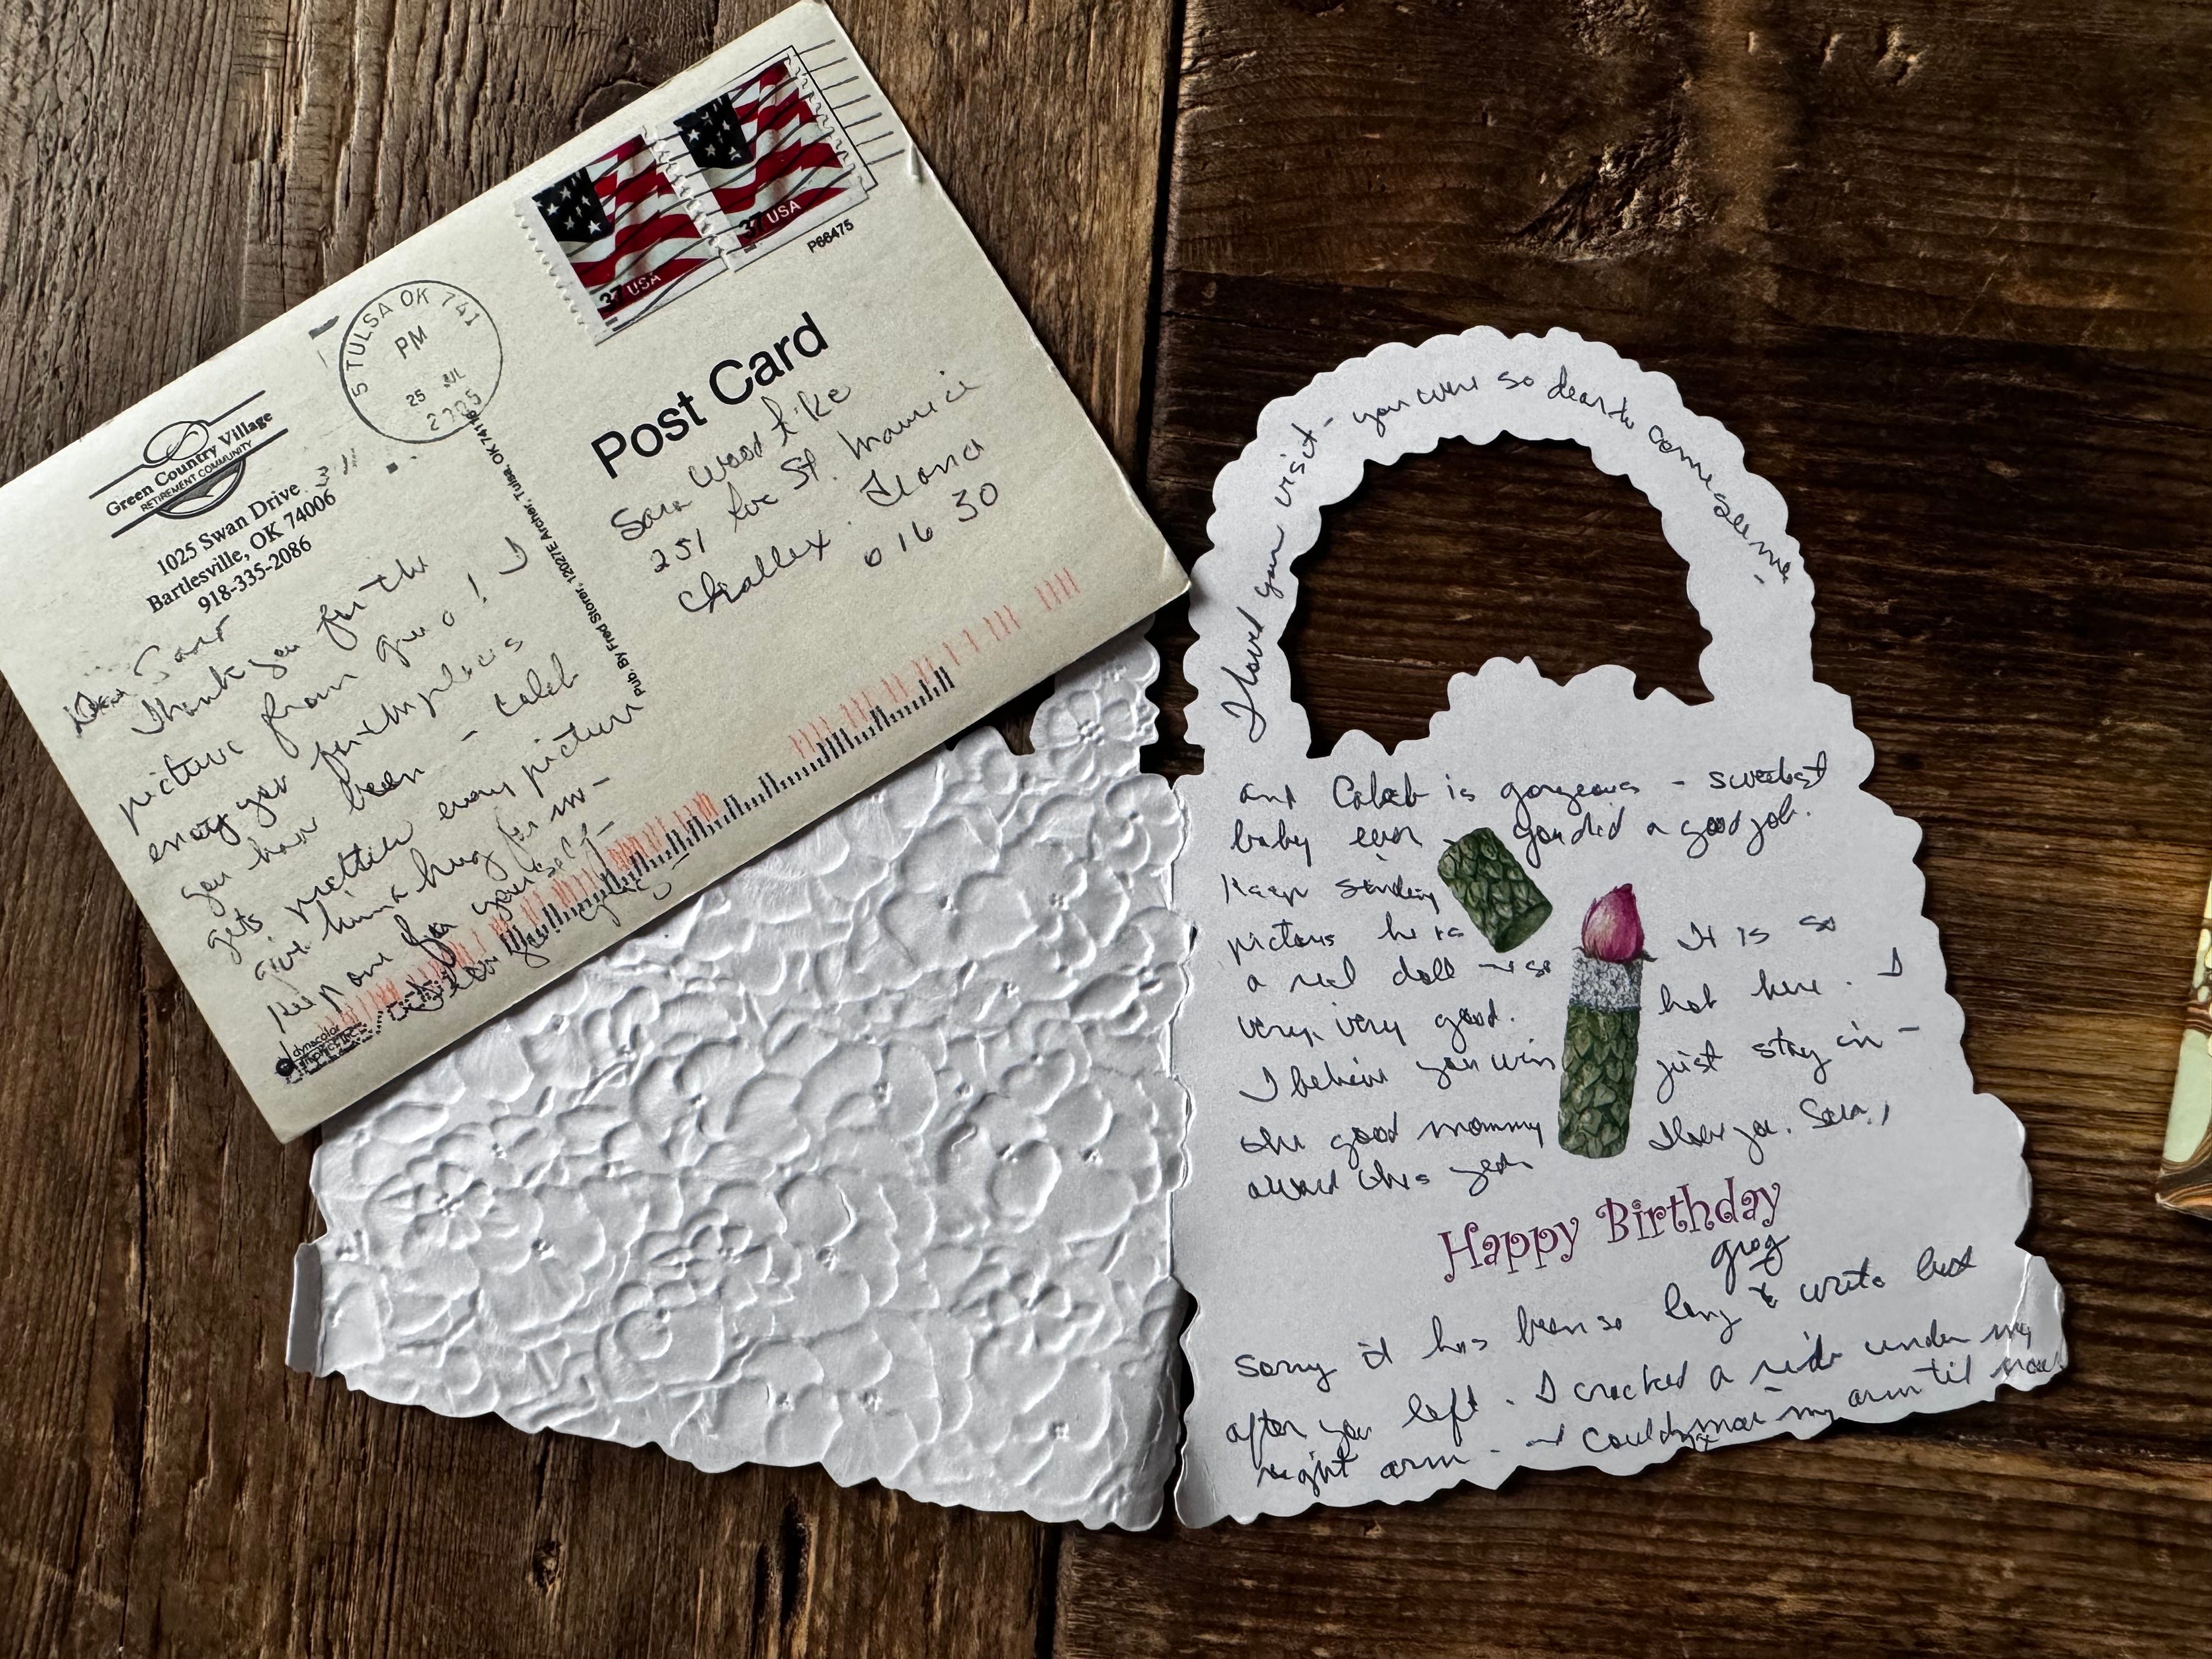 Green Country Village
RETIREMENT COMMUNITY
1025 Swan Drive
Bartlesville, OK 74006
918-335-2086
TULSA OK 741
PM
25 JUL
37 USA
37 USA
P66475
Post Card
Sara
251 Rue St. Maurice
Challex
01630
Pub. By Fred Storer, 12027E Archer, Tulsa, OK 74116
Dear Sara
Thank you for the
picture from you! I
enjoy your
you have been - Caleb
gets prettier every picture
give him a hug for me -
Keep one for yourself -
dynacolor
I loved your visit - you were so dear to come see me -
and Caleb is gorgeous - sweetest
baby ever - you did a good job.
Keep sending
pictures he is
a real doll - so
very, very good.
I believe you win
the good mommy
award this year
It is so
hot here. I
just stay in -
I love you. Sara,
Happy Birthday
Sorry it has been so long to write but
after you left. I cracked a rib under my
right arm - and couldn't move my arm til now